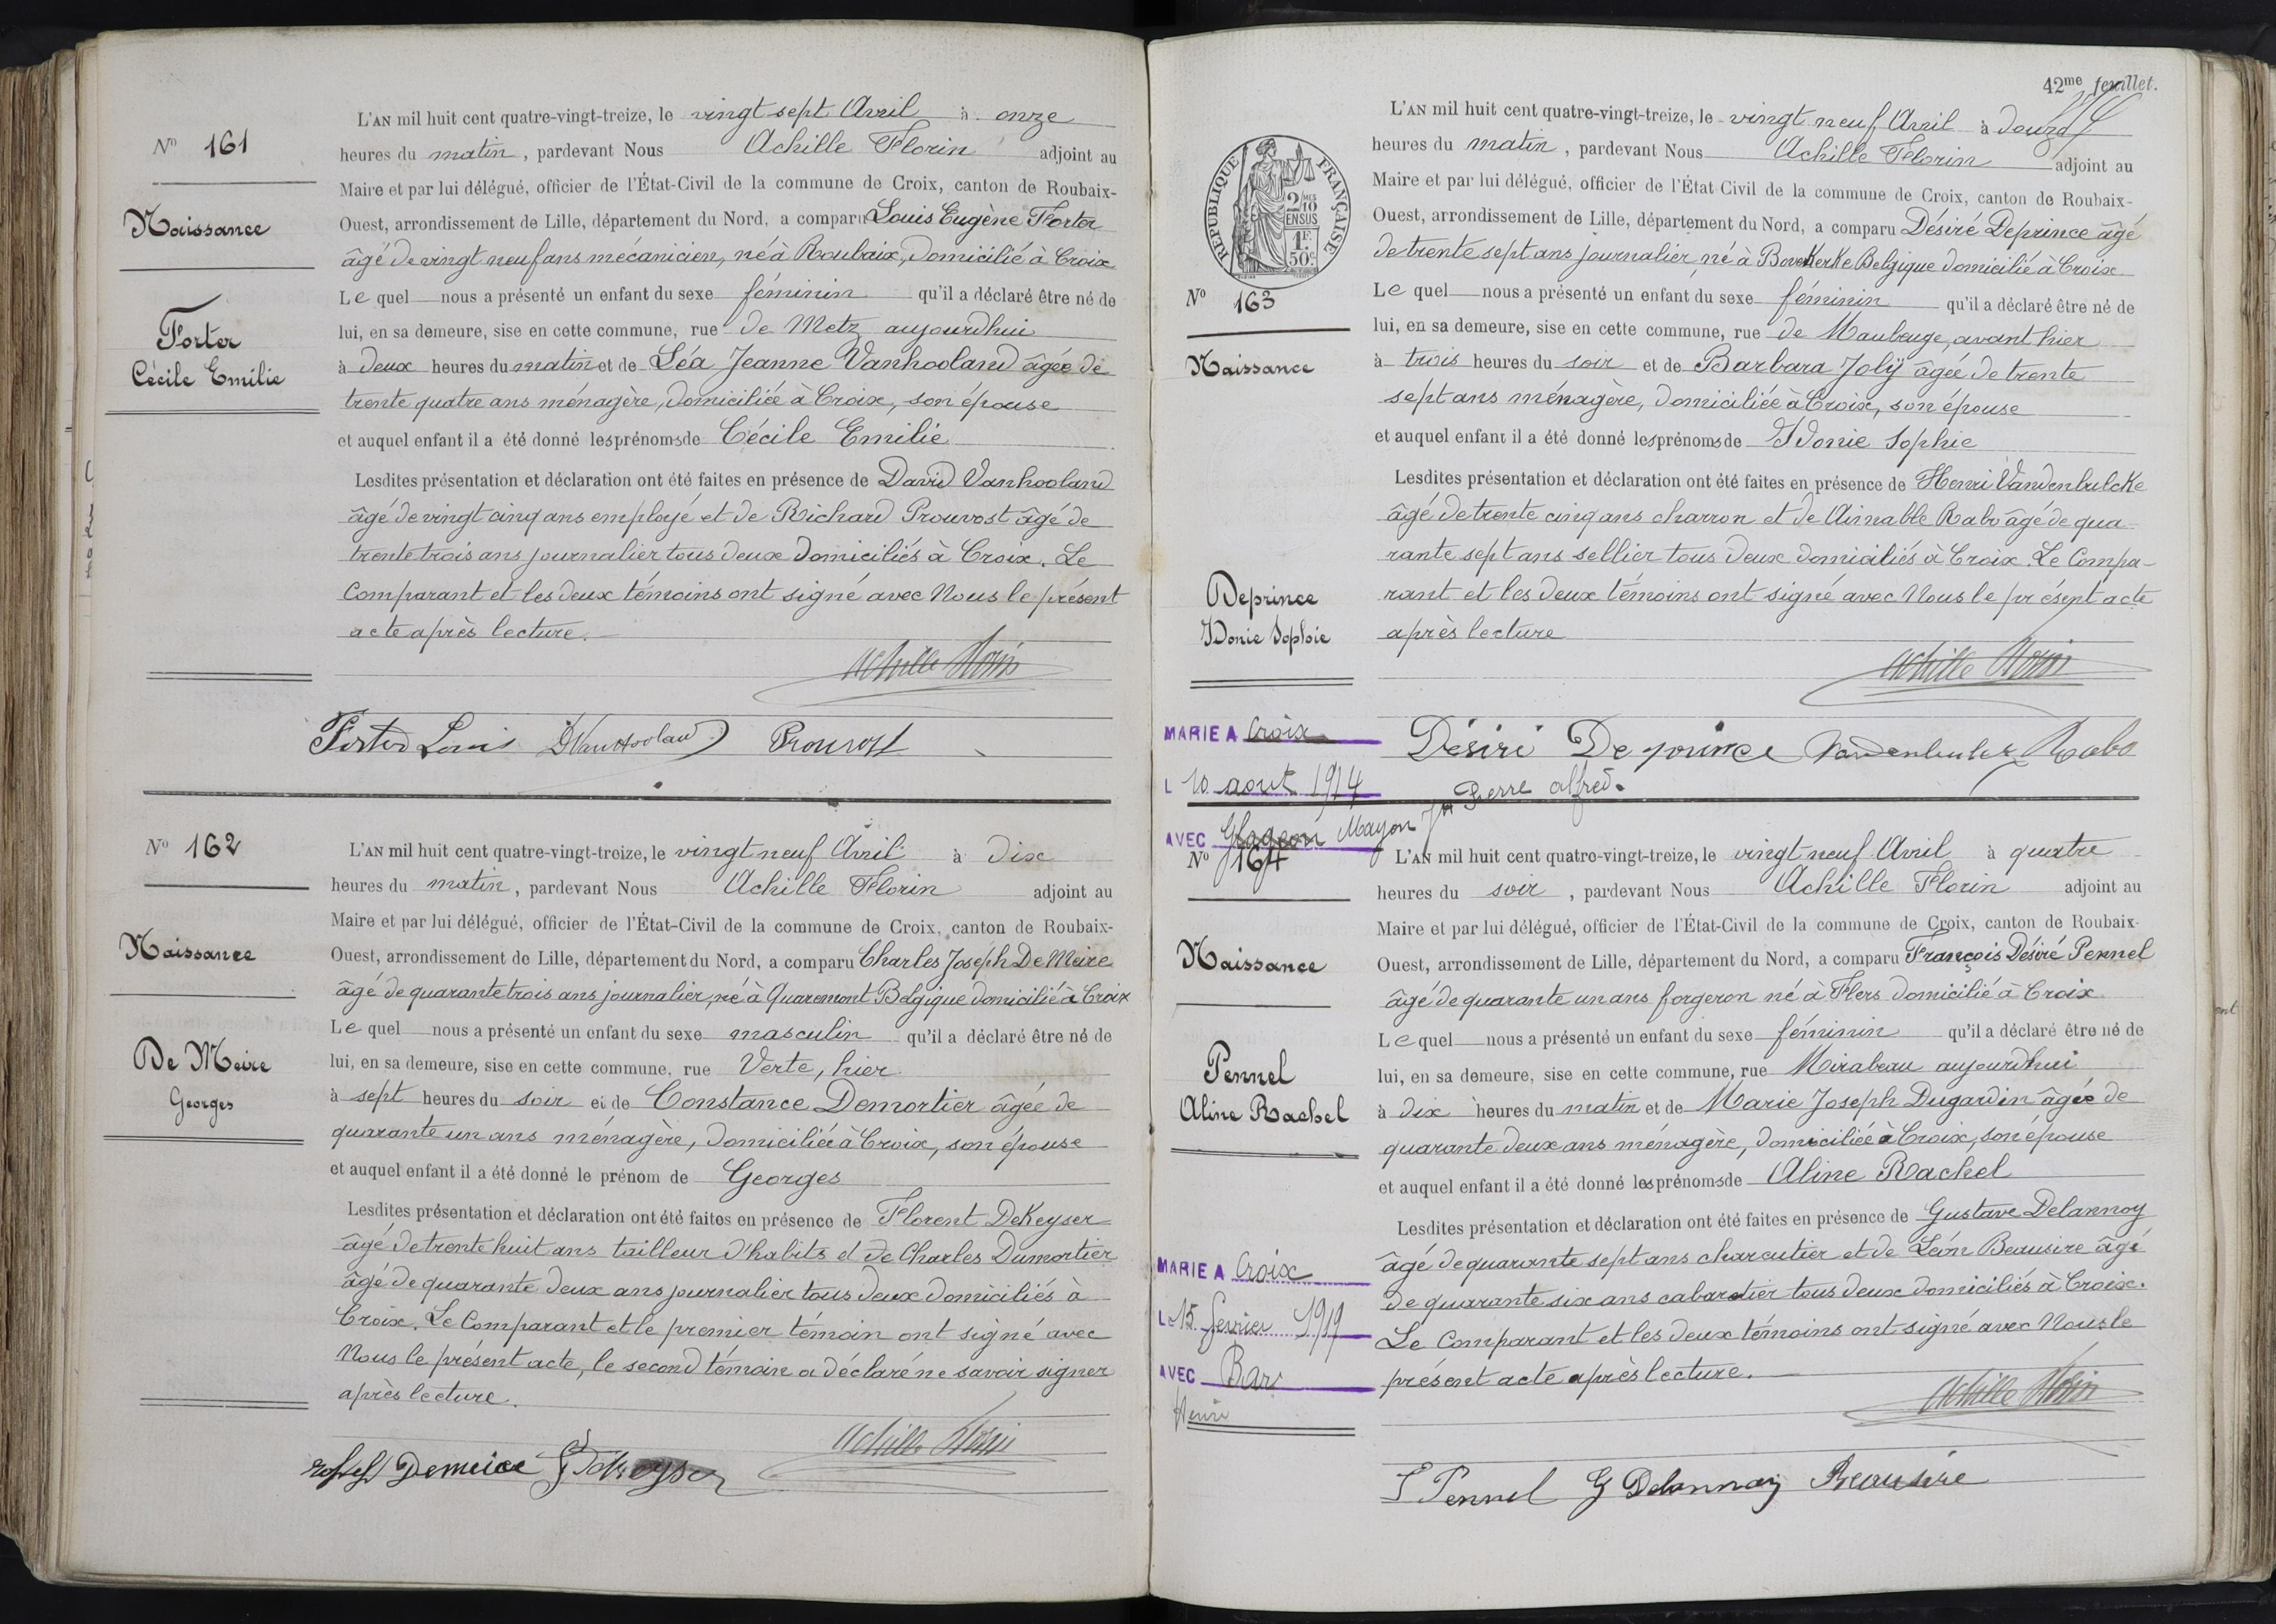 N° 161
Naissance
Forter
Cécile Emilie
L'AN mil huit cent quatre-vingt-treize, le vingt sept Avril à onze
heures du matin, pardevant Nous Achille Florin adjoint au
Maire et par lui délégué, officier de l'État-Civil de la commune de Croix, canton de Roubaix-
Ouest, arrondissement de Lille, département du Nord, a comparu Louis Eugène Forter
âgé de vingt neuf ans mécanicien, né à Roubaix, domicilié à Croix
Le quel nous a présenté un enfant du sexe féminin qu'il a déclaré être né de
lui, en sa demeure, sise en cette commune, rue de Metz aujourdhui
à deux heures du matin et de Léa Jeanne Vanhooland âgée de
trente quatre ans ménagère, domiciliée à Croix, son épouse
et auquel enfant il a été donné les prénoms de Cécile Emilie
Lesdites présentation et déclaration ont été faites en présence de David Vanhooland
âgé de vingt cinq ans employé et de Richard Prouvost âgé de
trente trois ans journalier tous deux domiciliés à Croix. Le
Comparant et les deux témoins ont signé avec Nous le présent
acte après lecture.
Achille Florin
Forter Louis DVanhooland Prouvost
N° 162
Naissance
De Meire
Georges
L'AN mil huit cent quatre-vingt-treize, le vingt neuf Avril à dix
heures du matin, pardevant Nous Achille Florin adjoint au
Maire et par lui délégué, officier de l'État-Civil de la commune de Croix, canton de Roubaix-
Ouest, arrondissement de Lille, département du Nord, a comparu Charles Joseph De Meire
âgé de quarante trois ans journalier, né à Quaremont Belgique domicilié à Croix
Le quel nous a présenté un enfant du sexe masculin qu'il a déclaré être né de
lui, en sa demeure, sise en cette commune, rue Verte, hier
à sept heures du soir et de Constance Demortier âgée de
quarante un ans ménagère, domiciliée à Croix, son épouse
et auquel enfant il a été donné le prénom de Georges
Lesdites présentation et déclaration ont été faites en présence de Florent DeKeyser
âgé de trente huit ans tailleur d'habits et de Charles Dumortier
âgé de quarante deux ans journalier tous deux domiciliés à
Croix. Le Comparant et le premier témoin ont signé avec
Nous le présent acte, le second témoin a déclaré ne savoir signer
après lecture.
Achille Florin
Demeire Dekeyser
42me feuillet.
REPUBLIQUE FRANÇAISE
2/10 MES
EN SUS
1F.
50c
N° 163
Naissance
Deprince
Idonie Sophie
L'AN mil huit cent quatre-vingt-treize, le vingt neuf Avril à douze
heures du matin, pardevant Nous Achille Florin adjoint au
Maire et par lui délégué, officier de l'État Civil de la commune de Croix, canton de Roubaix-
Ouest, arrondissement de Lille, département du Nord, a comparu Désiré Deprince âgé
de trente sept ans journalier, né à Bovekerke Belgique domicilié à Croix
Le quel nous a présenté un enfant du sexe féminin qu'il a déclaré être né de
lui, en sa demeure, sise en cette commune, rue de Maubeuge, avant hier
à trois heures du soir et de Barbara Jolÿ âgée de trente
sept ans ménagère, domiciliée à Croix, son épouse
et auquel enfant il a été donné les prénoms de Idonie Sophie
Lesdites présentation et déclaration ont été faites en présence de Henri Vandenbulcke
âgé de trente cinq ans charron et de Aimable Rabo âgé de qua
rante sept ans sellier tous deux domiciliés à Croix. Le Compa-
rant et les deux témoins ont signé avec Nous le présent acte
après lecture
Achille Florin
Désiré Deprince Vandenbulcke Rabo
MARIE A Croix
L 10 aout 1914
AVEC Mayon
Pierre alfred.
N° 164
Naissance
Pennel
Aline Rachel
L'AN mil huit cent quatre-vingt-treize, le vingt neuf Avril à quatre
heures du soir, pardevant Nous Achille Florin adjoint au
Maire et par lui délégué, officier de l'État-Civil de la commune de Croix, canton de Roubaix-
Ouest, arrondissement de Lille, département du Nord, a comparu François Désiré Pennel
âgé de quarante un ans forgeron né à Flers domicilié à Croix
Le quel nous a présenté un enfant du sexe féminin qu'il a déclaré être né de
lui, en sa demeure, sise en cette commune, rue Mirabeau aujourdhui
à dix heures du matin et de Marie Joseph Dugardin âgée de
quarante deux ans ménagère, domiciliée à Croix, son épouse
et auquel enfant il a été donné les prénoms de Aline Rachel
Lesdites présentation et déclaration ont été faites en présence de Gustave Delannoy
âgé de quarante sept ans charcutier et de Léon Beausire âgé
de quarante six ans cabaretier tous deux domiciliés à Croix.
Le Comparant et les deux témoins ont signé avec Nous le
présent acte après lecture.
Achille Florin
F Pennel G Delannoy Beausire
MARIE A Croix
Le 15 fevrier 1919
AVEC Bar
Henri